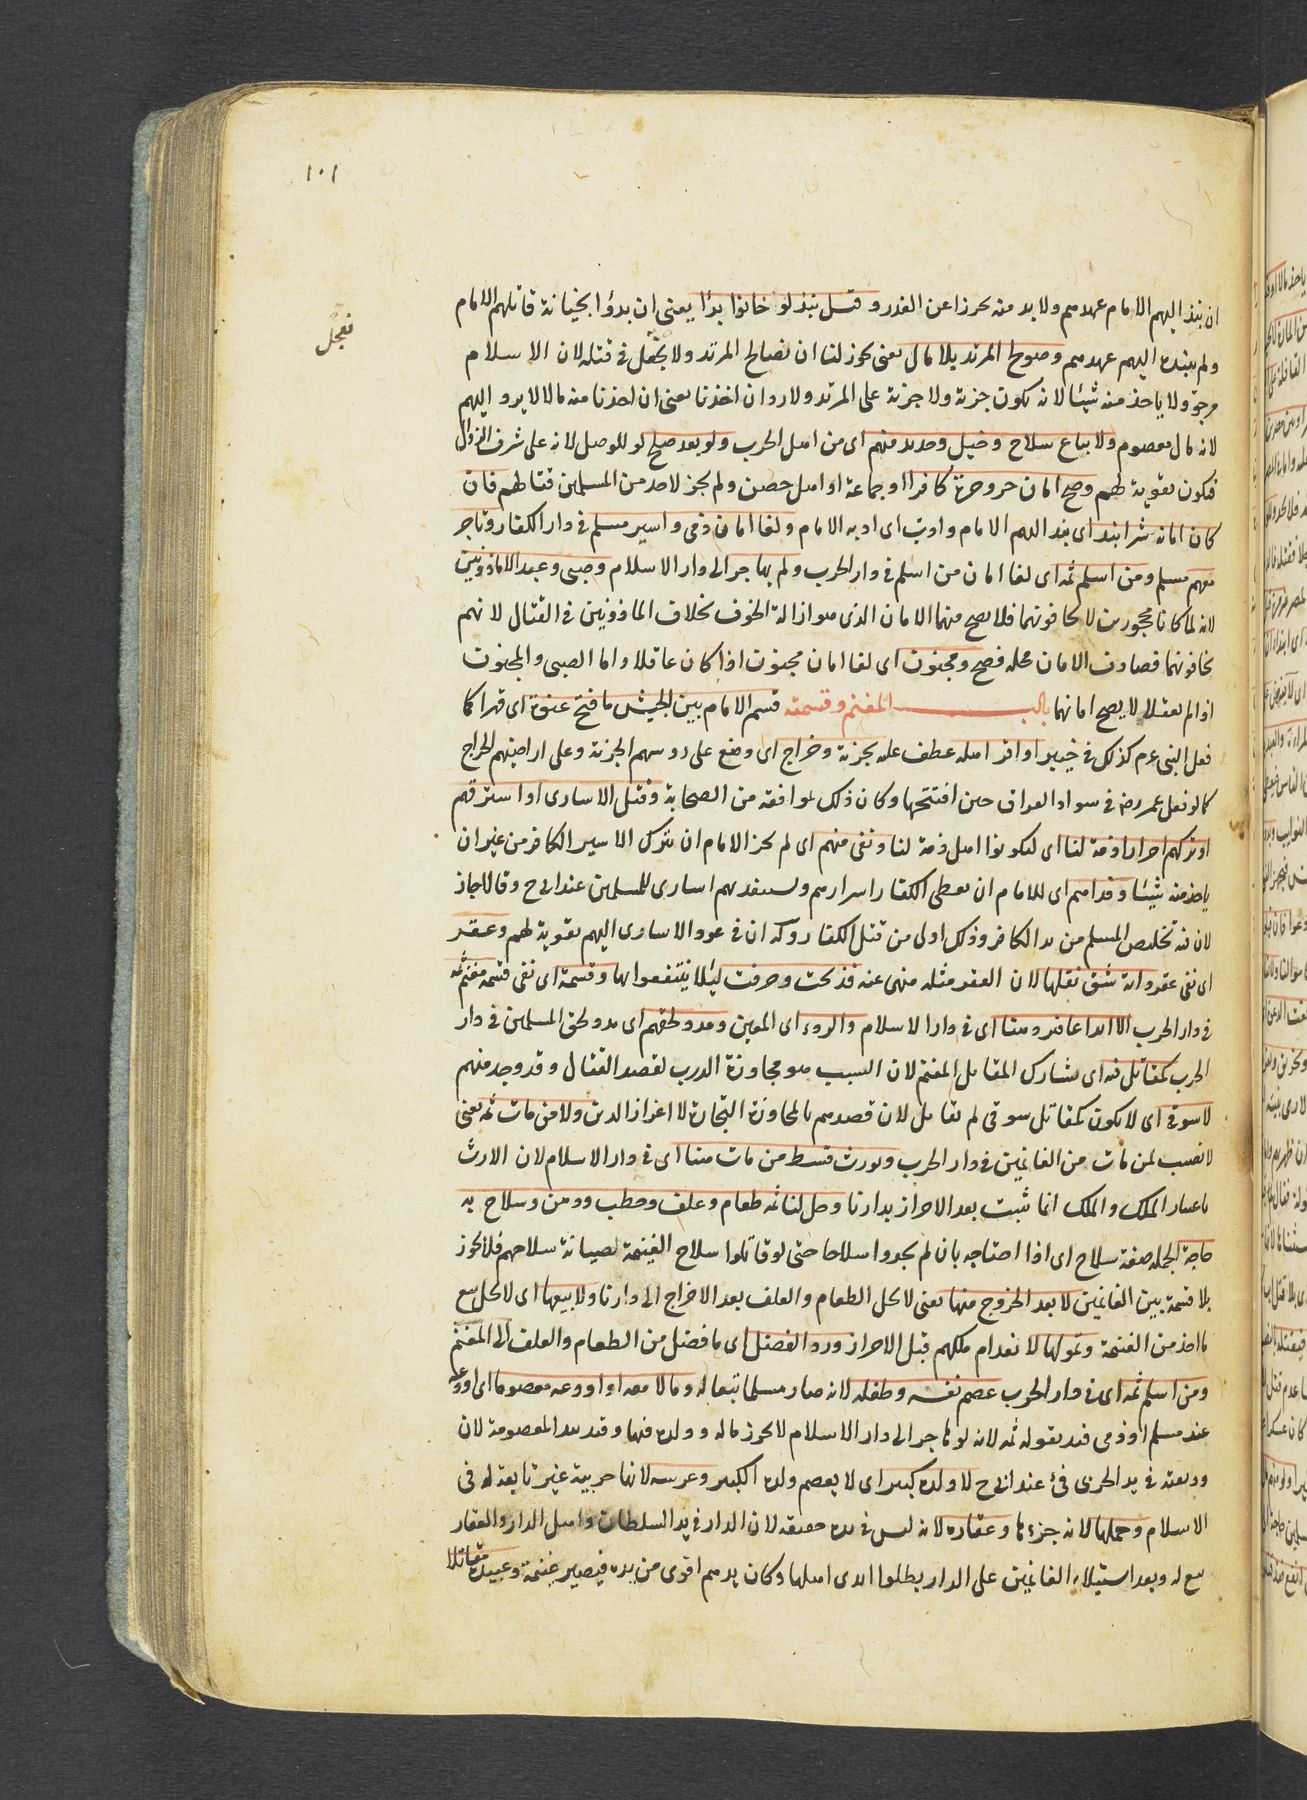 ١٠١
ان ينبذ اليهم الامام عهدهم ولا بد منه تحرزا عن الغدر و قبل نبذ لو خانوا بدؤا يعنى ان بدؤا بخيانة قاتلهم الامام
نعجل
ولم ينبذ اليهم عهدهم وصولح المرتد بلا مال يعنى يجوز لنا ان نصالح المرتد ولا نعجل فى قتله لان الاسلام
مرجو ولا ياخذ منه شيئا لانه يكون جزية ولا جزية على المرتد ولا رد ان اخذنا يعنى ان اخذنا منه مالا لا يرد اليهم
لانه مال معصوم ولا يباع سلاح وخيل وحديد منهم اى من اهل الحرب ولو بعد صلح لو للوصل لانه على شرف الزوال
فيكون تقوية لهم وصح امان حر وحرة كافرا او جماعة او اهل حصن ولم يجز لاحد من المسلمين قتالهم فان
كان امانه شرا نبذ اى نبذ اليهم الامام وادب اى ادبه الامام ولغا امان ذمى واسير مسلم فى دار الكفار وتاجر
معهم مسلم ومن اسلم ثمه اى لغا امان من اسلم فى دار الحرب ولم يهاجر الى دار الاسلام وصبى وعبد الا ماذونين
لانه لما كانا محجورين لا يخافونهما فلا يصح منهما الامان الذى هو ازالة الخوف بخلاف الماذونين فى القتال لانهم
يخافونهما فصادف الامان محله فصح ومجنون اى لغا امان مجنون اذا كان عاقلا واما الصبى والمجنون
اذا لم يعقلا لا يصح امانهما باب المغنم وقسمته قسم الامام بين الجيش ما فتح عنوة اى قهرا كما
فعل النبى عم كذلك فى خيبر او اقر اهله عطف عليه بجزية وخراج اى وضع على رؤسهم الجزية وعلى اراضيهم الخراج
كما فعل عمر رضه فى سواد العراق حين افتتحها وكان ذلك بموافقة من الصحابة وقتل الاسارى او استرقهم
او تركهم احرارا ذمة لنا اى ليكونوا اهل ذمة لنا ونفى منهم اى لم يجز الامام ان يترك الاسير الكافر من غير ان
ياخذ منه شيئا وفداهم اى للامام ان يعطى الكفار اسرارهم ويستنقذ بهم اسارى المسلمين عند ابى ح وقالا جاز
لان فيه تخليص المسلم من يد الكافر وذلك اولى من قتل الكفار وله ان فى عود الاسارى اليهم تقوية لهم وعقر
اى نفى عقر دابة شق نقلها لان العقر مثله منهى عنه فذبحت وحرقت ليلا ينتفعوا بها وقسمة اى نفى قسمه مغنم ثمه
فى دار الحرب الا ايداعا فترد هنا اى فى دار الاسلام والردء اى المعين ومدد لحقهم اى مدد لحق المسلمين فى دار
الحرب كمقاتل فيه اى يشارك المقاتل المغنم لان السبب هو مجاوزة الدرب لقصد القتال وقد وجد منهم
لا سوقى اى لا يكون كمقاتل سوقى لم يقاتل لان قصدهم بالمجاوزة التجارة لا اعزاز الدين ولا من مات ثمه يعنى
لا نصيب لمن مات من الغانمين فى دار الحرب ويورث قسط من مات هنا اى فى دار الاسلام لان الارث
باعتبار الملك والملك انما يثبت بعد الاحراز بدارنا وحل لنا ثمه طعام وعلف وحطب ودهن وسلاح به
حاجة الجملة صفة سلاح اى اذا احتاجه بان لم يجدوا سلاحا حتى لو قاتلوا سلاح الغنيمة لصيانة سلاحهم فلا يجوز
بلا قسمة بين الغانمين لا بعد الخروج منها يعنى لا يحل الطعام والعلف بعد الاخراج الى دارنا ولا بيعها اى لا يحل بيع
ما اخذ من الغنيمة وتمولها لانعدام ملكهم قبل الاحراز ورد الفضل اى ما فضل من الطعام والعلف الى المغنم
ومن اسلم ثمه اى فى دار الحرب عصم نفسه وطفله لانه صار مسلما تبعا له ومالا معه او اودعه معصوما اى اودعه
عند مسلم او ذمى قيد بقوله ثمه لانه لو هاجر الى دار الاسلام لا يحرز ماله وولده فيها وقيد بيد المعصومة لان
وديعته فى يد الحربى فئ عند ابى ح لا ولده كبيرا اى لا يعصم ولده الكبير وعرسه لانها حربية غير تابعة له فى
الاسلام وحملها لانه جزءها وعقاره لانه ليس فى يده حقيقة لان الدار فى يد السلطان واهل الدار والعقار
تبع له وبعد استيلاء الغانمين على الدار بطلوا ايدى اهلها وكان يدهم اقوى من يده فيصير غنيمة وعبيده مقاتلا